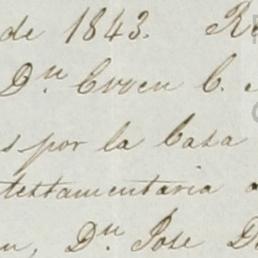 de 1843. Re
Dn. Green C.
s por la Casa
testamentaria
n, Dn. Jose D